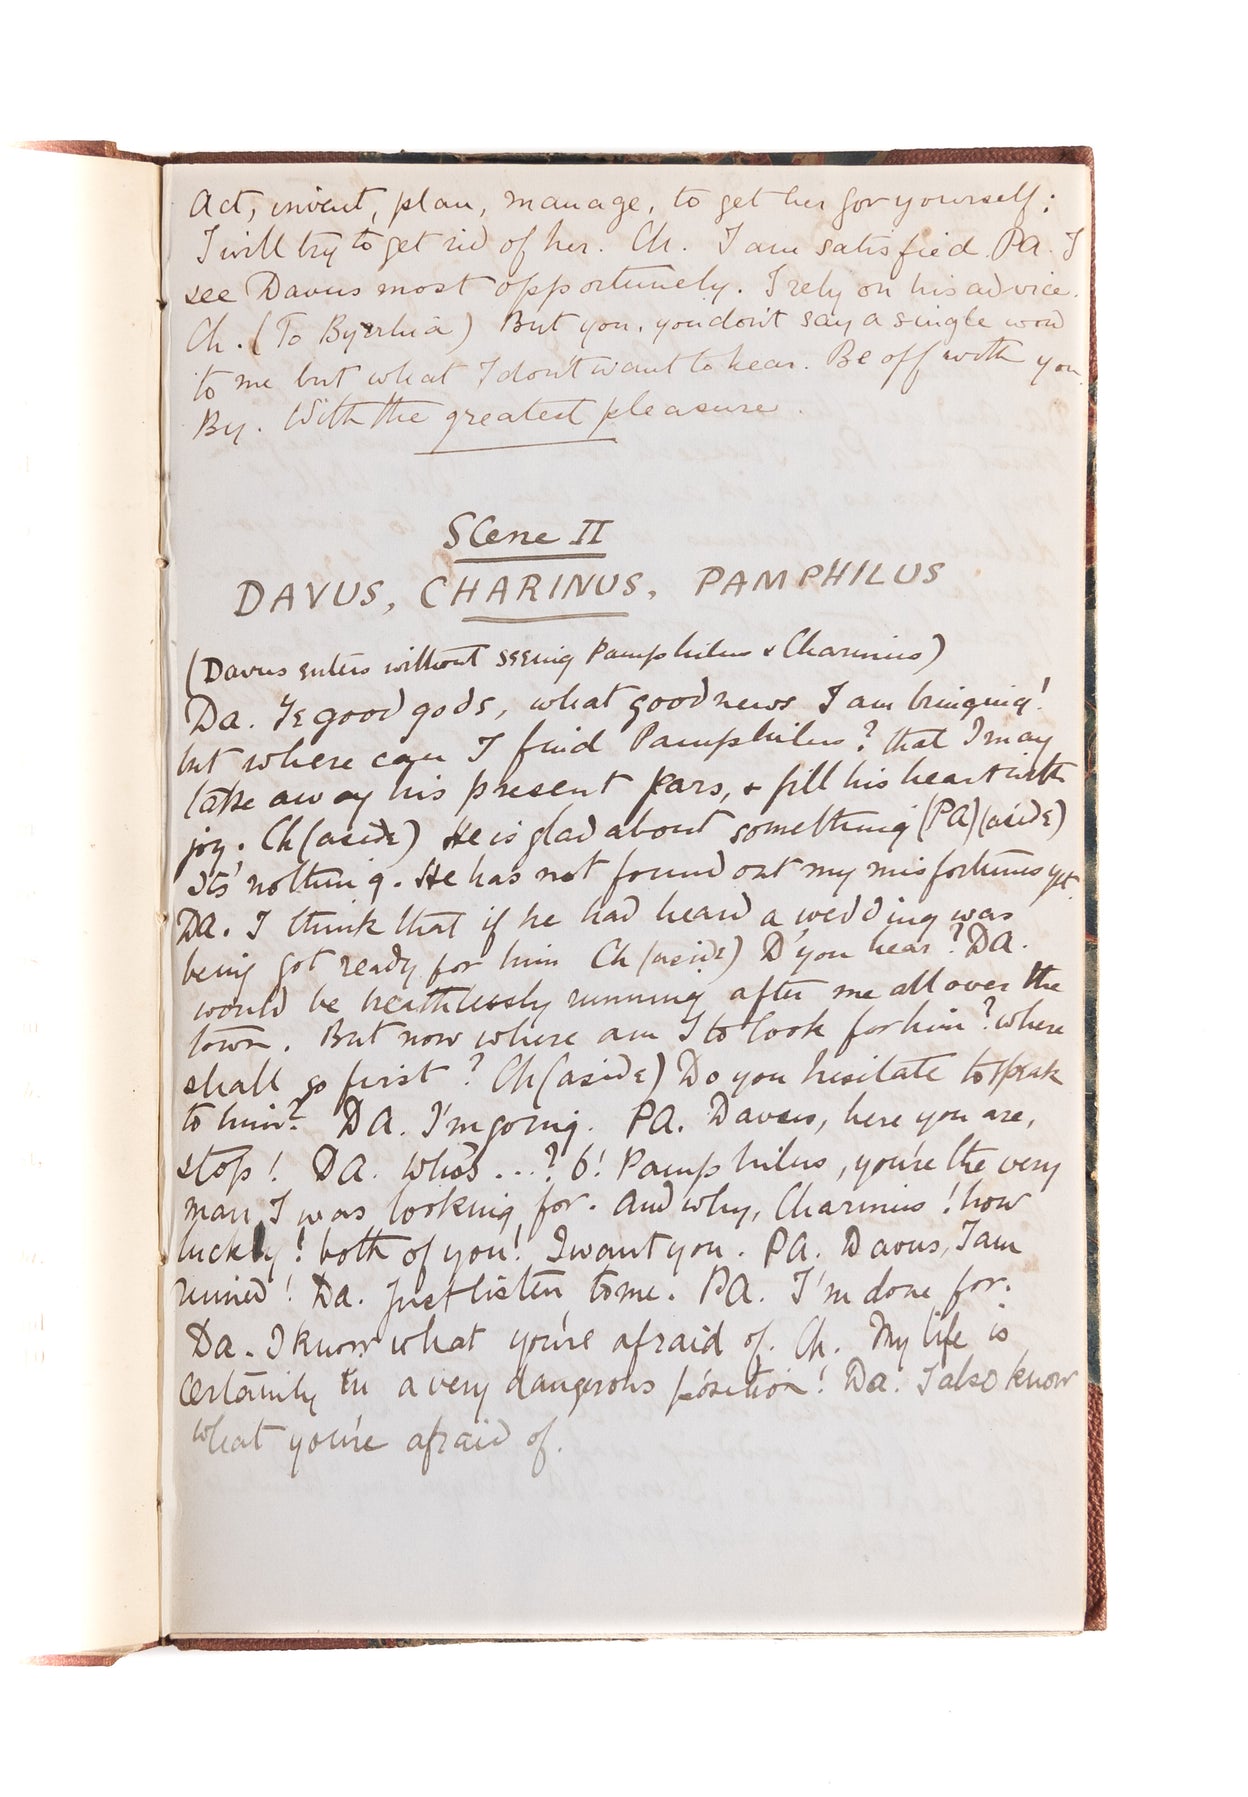 Act, invent, plan, manage, to get her for yourself;
I will try to get rid of her. Ch. I am satisfied. Pa. I
see Davus most opportunely. I rely on his advice.
Ch. (To Byrrhia) But you, you don't say a single word
to me but what I don't want to hear. Be off with you.
By. With the greatest pleasure.
Scene II
DAVUS, CHARINUS, PAMPHILUS
(Davus enters without seeing Pamphilus & Charinus)
Da. Ye good gods, what good news I am bringing!
but where can I find Pamphilus? that I may
take away his present fears, & fill his heart with
joy. Ch (aside) He is glad about something (PA) (aside)
It's nothing. He has not found out my misfortunes yet.
DA. I think that if he had heard a wedding was
being got ready for him Ch (aside) D'you hear? DA.
would be breathlessly running after me all over the
town. But now where am I to look for him? where
shall go first? Ch (aside) Do you hesitate to speak
to him? DA. I'm going. PA. Davus, here you are,
stop! DA. Who's ...? O! Pamphilus, you're the very
man I was looking for. And why, Charinus! how
lucky! both of you! I want you. PA. Davus, I am
ruined! Da. Just listen to me. PA. I'm done for.
Da. I know what you're afraid of. Ch. My life is
certainly in a very dangerous position! Da. I also know
what you're afraid of.